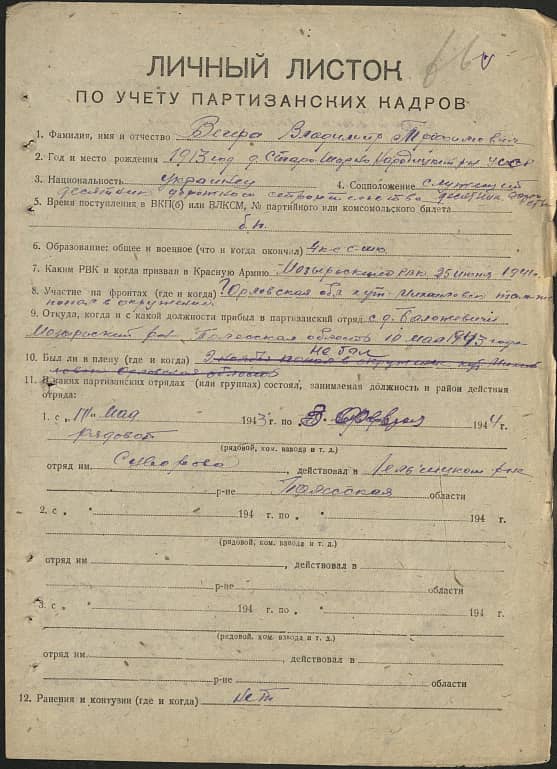 ЛИЧНЫЙ ЛИСТОК
ПО УЧЕТУ ПАРТИЗАНСКИХ КАДРОВ
1. Фамилия, имя и отчество Вегера Владимир Трофимович
2. Год и место рождения 1913 год д. Народицкий р-н УССР
3. Национальность украинец 4. Соцположение служащий
десятник
5. Время поступления в ВКП(б) или ВЛКСМ, № партийного или комсомольского билета
б.п.
6. Образование: общее и военное (что и когда окончил)
7. Каким РВК и когда призван в Красную Армию Мозырьским РВК 25 июня 1941 г.
8. Участие на фронтах (где и когда) Орловская обл хут. Михайловск там же
попал в окружение
9. Откуда, когда и с какой должности прибыл в партизанский отряд с д.
Мозырьский р-н Полесская область 10 мая 1943 года
10. Был ли в плену (где и когда) не был
11. В каких партизанских отрядах (или группах) состоял, занимаемая должность и район действия
отряда:
1. с „10" мая 1943 г. по 3. февраля 1944 г.
рядовой
(рядовой, ком. взвода и т. д.)
отряд им Суворова, действовал в Ельском р-не
р-не Полесская области
2. с „ " 194 г. по „ " 194 г.
(рядовой, ком. взвода и т. д.)
отряд им , действовал в
р-не области
3. с „ " 194 г. по „ " 194 г.
(рядовой, ком. взвода и т. д.)
отряд им , действовал в
р-не области
12. Ранения и контузии (где и когда) нет